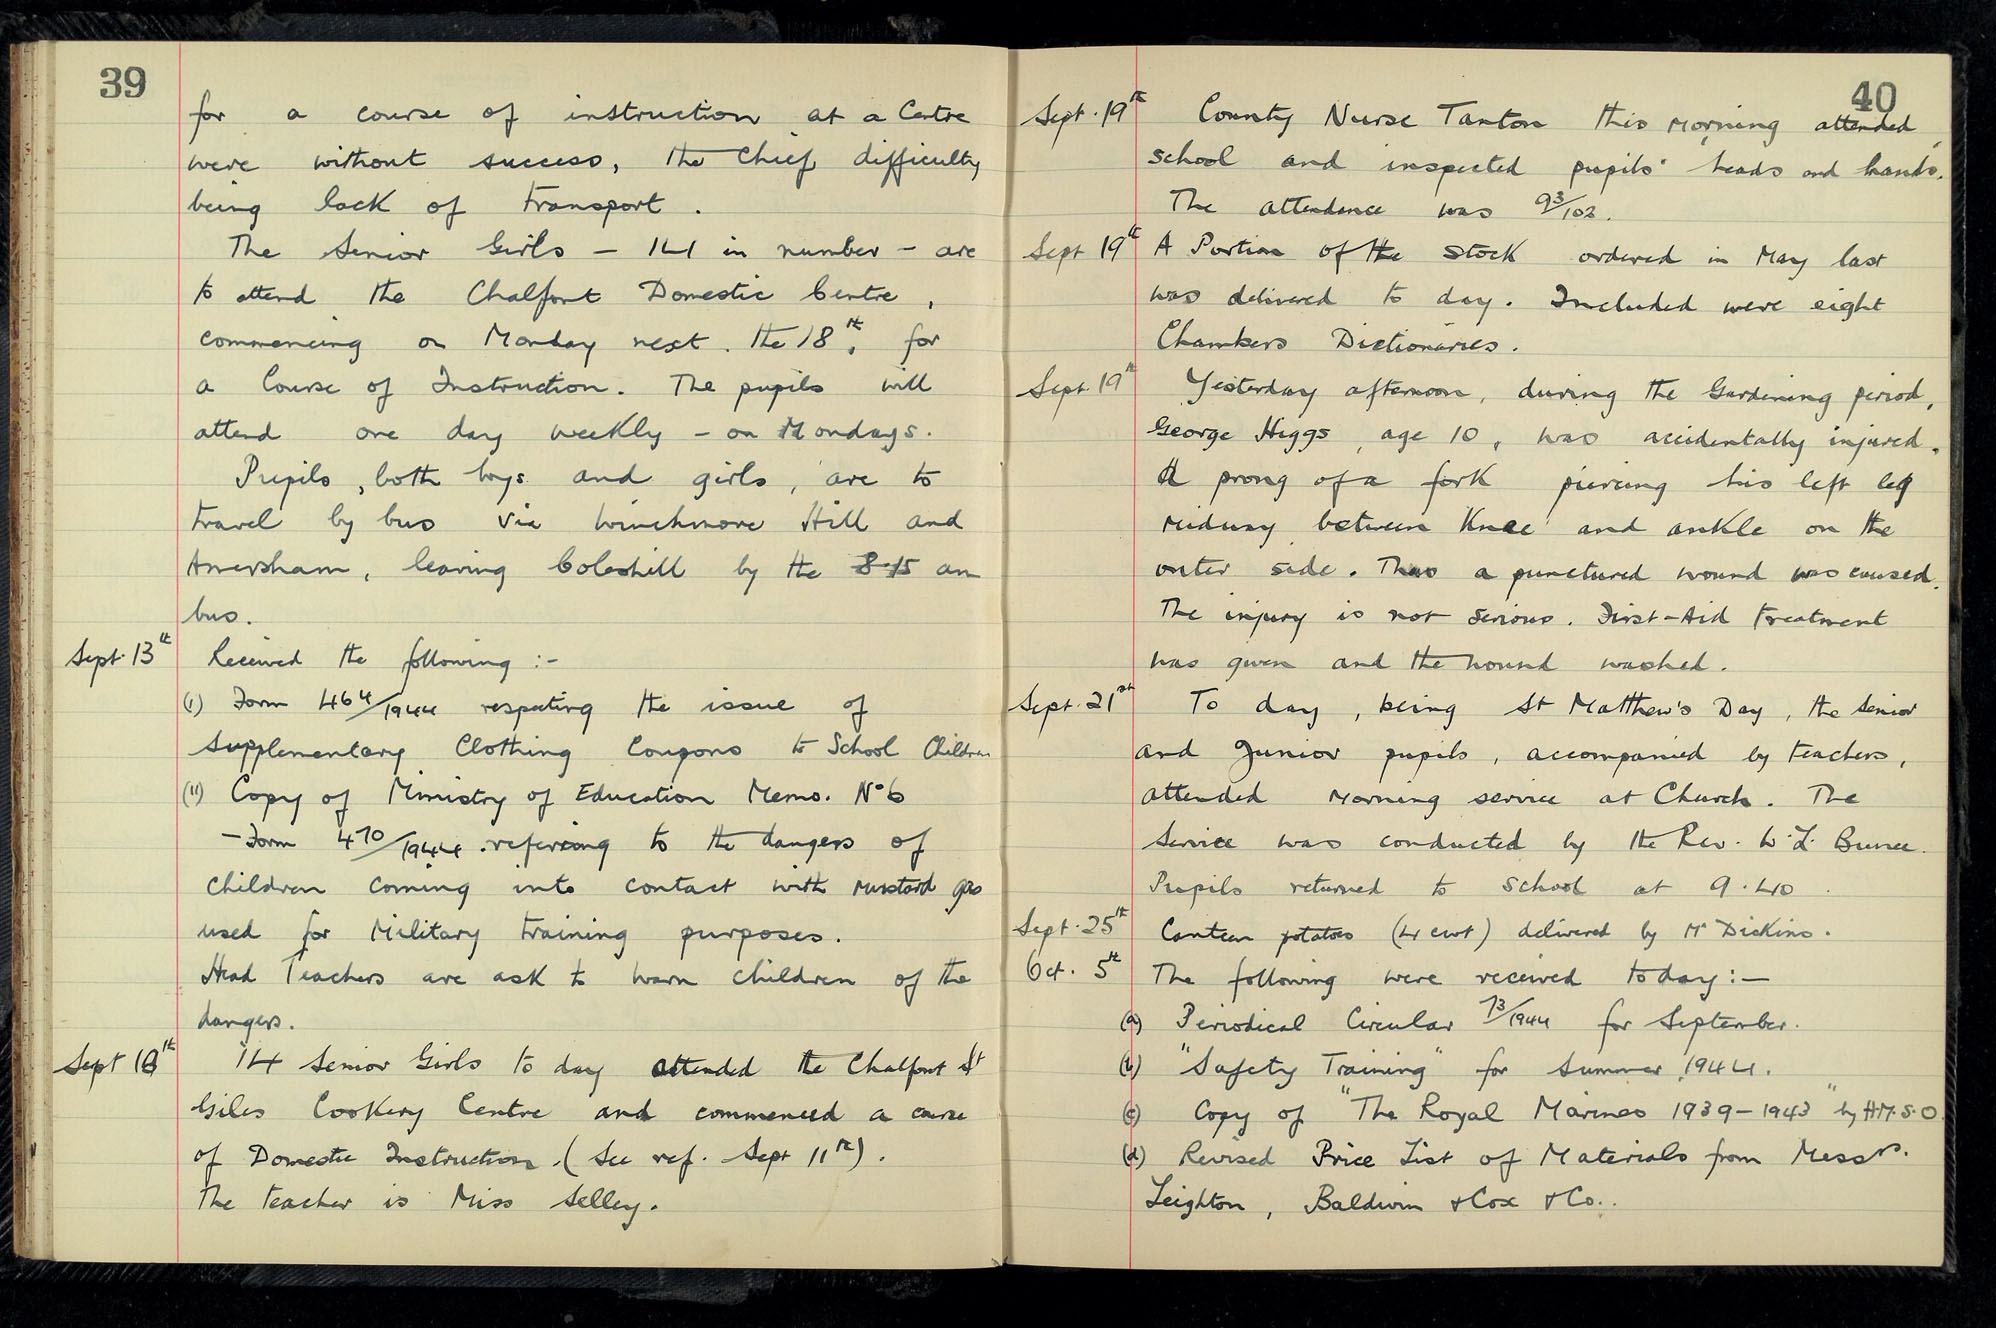 39
for a course of instruction at a Centre
were without success, the chief difficulty
being lack of transport.
The Senior Girls – 14 in number – are
to attend the Chalfont Domestic Centre,
commencing on Monday next. the 18th, for
a Course of Instruction. The pupils will
attend one day weekly – on Mondays.
Pupils, both boys and girls, are to
travel by bus via Winchmore Hill and
Amersham, leaving Coleshill by the 8-15 am
bus.
Sept. 13th Received the following :-
(i) Form 464/1944 respecting the issue of
Supplementary Clothing Coupons to School Children
(ii) Copy of Ministry of Education Memo. No 6
– Form 470/1944 . referring to the dangers of
children coming into contact with mustard gas
used for Military training purposes.
Head Teachers are ask to warn children of the
dangers.
Sept 18th 14 Senior Girls to day attended the Chalfont St
Giles Cookery Centre and commenced a course
of Domestic Instruction. (See ref. Sept 11th).
The teacher is Miss Selley.
40
Sept. 19th County Nurse Tanton this morning attended
school and inspected pupils' heads and hands.
The attendance was 93/102.
Sept 19th A Portion of the stock ordered in May last
was delivered to day. Included were eight
Chambers Dictionaries.
Sept. 19th Yesterday afternoon, during the Gardening period,
George Higgs, age 10, was accidentally injured.
A prong of a fork piercing his left leg
midway between knee and ankle on the
outer side. Thus a punctured wound was caused.
The injury is not serious. First-Aid treatment
was given and the wound washed.
Sept. 21st To day, being St Matthew's Day, the Senior
and Junior pupils, accompanied by teachers,
attended morning service at Church. The
Service was conducted by the Rev. W. L. Bunce.
Pupils returned to school at 9.40.
Sept. 25th Canteen potatoes (4 cwt) delivered by Mr Dickins.
Oct. 5th The following were received today :–
(a) Periodical Circular 73/1944 for September.
(b) "Safety Training" for Summer 1944.
(c) Copy of "The Royal Marines 1939–1943" by H.M.S.O.
(d) Revised Price List of Materials from Messrs.
Leighton, Baldwin & Cox & Co..